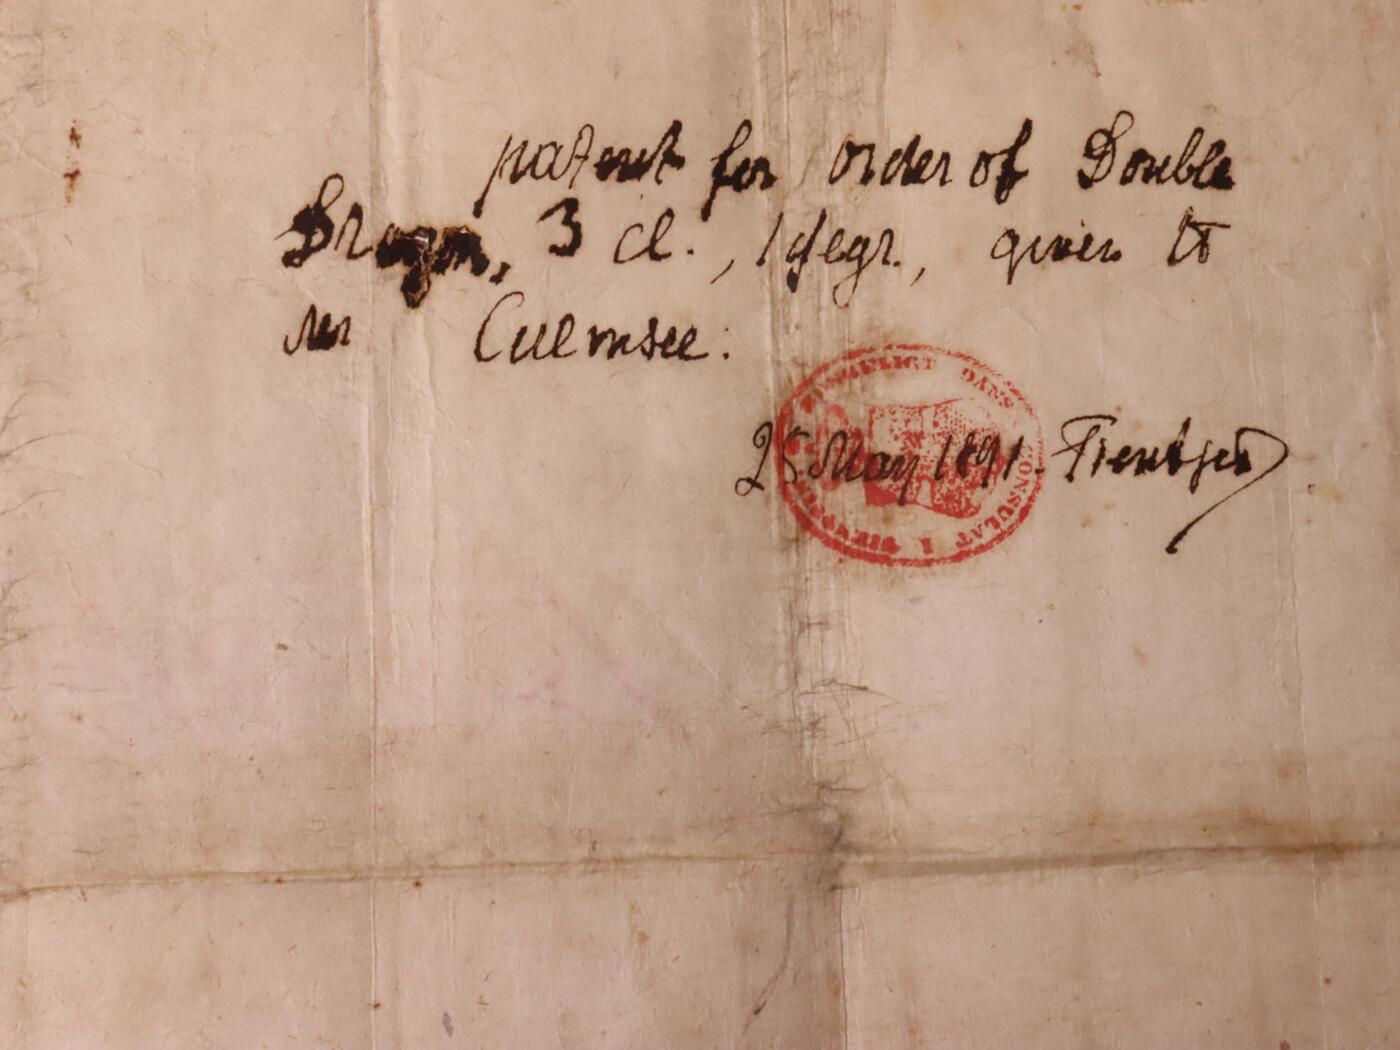 patent for order of Double
Dragon, 3 cl., 1 degr., given to
Mr Culmsee.
25 May 1891. Tientsin
KONGELIGT DANSK CONSULAT I TIENTSIN